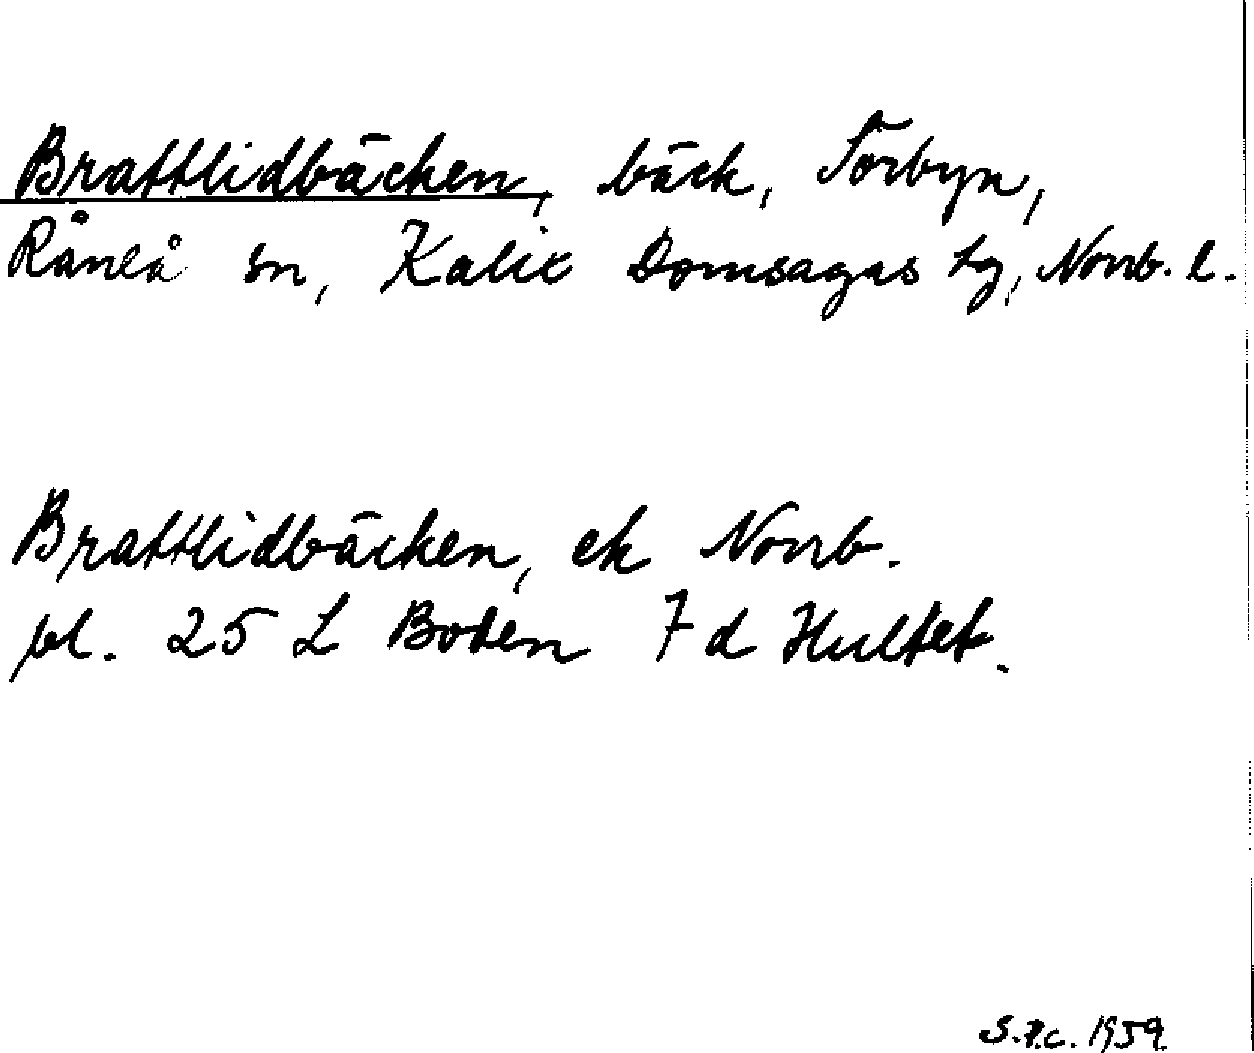 Brattlidbäcken, bäck, Törbyn,
Råneå sn, Kalix Domsagas tg, Norrb. l.
Brattlidbäcken, ek Norrb.
bl. 25 L Boden 7 d Hultet.
S.P.c. 1959.